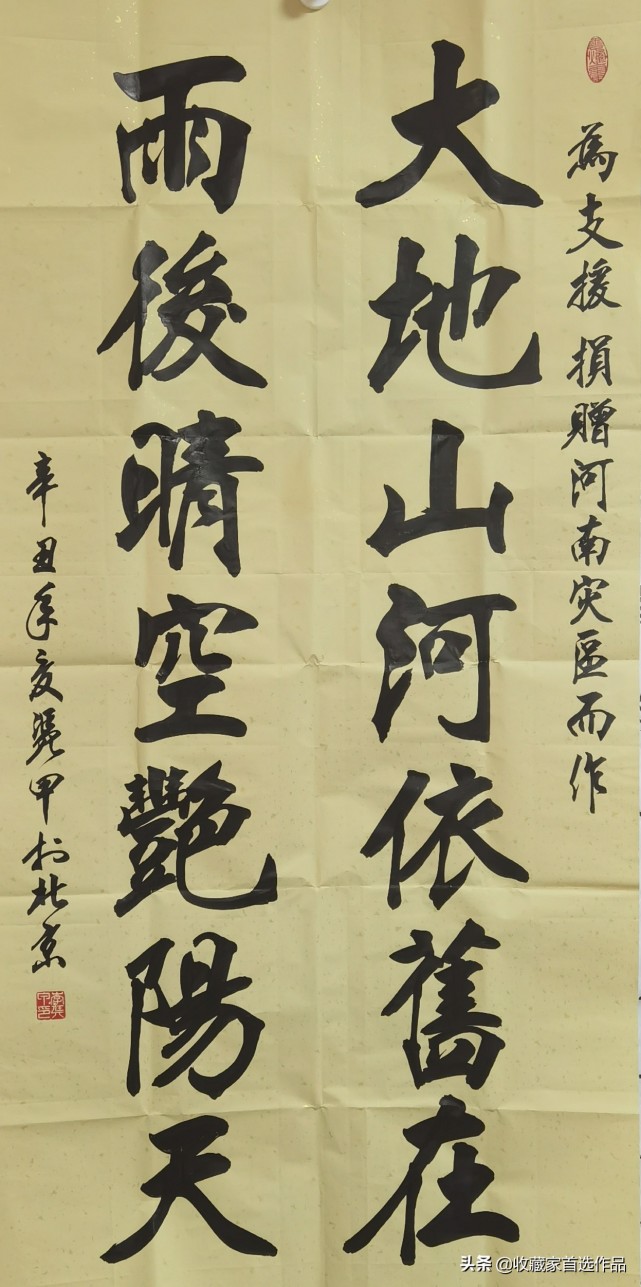 為支援 損贈河南灾區而作
大地山河依舊在
雨後晴空艷陽天
辛丑年夏 甲於北京
头条 @收藏家首选作品